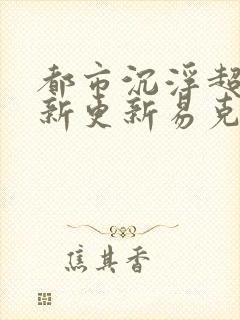 都市沉浮超
新更新易克
焦其香